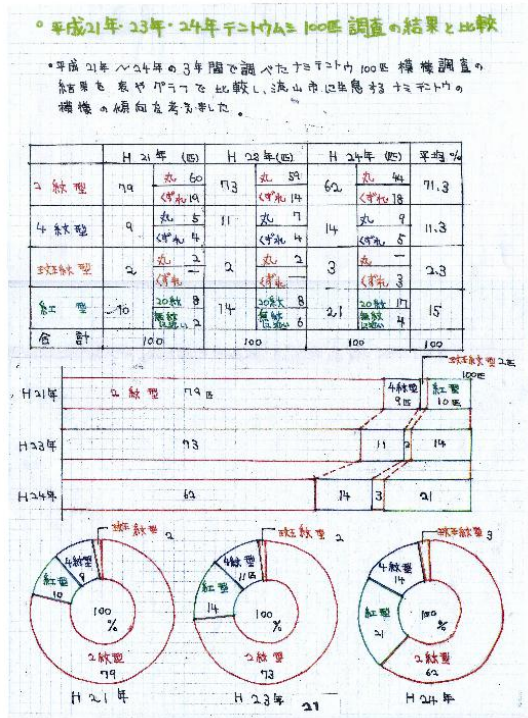 ○平成21年・23年・24年テントウムシ100匹 調査の結果と比較
・平成21年〜24年の3年間で調べたナミテントウ100匹 模様調査の
結果を表やグラフで比較し、流山市に生息するナミテントウの
模様の傾向を考えました。
H 21年 (匹) H 23年(匹) H 24年(匹) 平均%
2紋型 79 丸 60 くずれ 19 73 丸 59 くずれ 14 62 丸 44 くずれ 18 71.3
4紋型 9 丸 5 くずれ 4 11 丸 7 くずれ 4 14 丸 9 くずれ 5 11.3
斑紋型 2 丸 2 くずれ — 2 丸 2 くずれ — 3 丸 — くずれ 3 2.3
紅型 10 20紋 8 無紋に近い 2 14 20紋 8 無紋に近い 6 21 20紋 17 無紋に近い 4 15
合計 100 100 100 100
斑紋型 2匹
100匹
H21年 2紋型 79匹 4紋型 9匹 紅型 10匹
H23年 73 11 2 14
H24年 62 14 3 21
斑紋型 2
4紋型 9
紅型 10
100 %
2紋型 79
H 21年
斑紋型 2
4紋型 11匹
紅型 14
100 %
2紋型 73
H 23年
斑紋型 3
4紋型 14
紅型 21
100 %
2紋型 62
H 24年
21